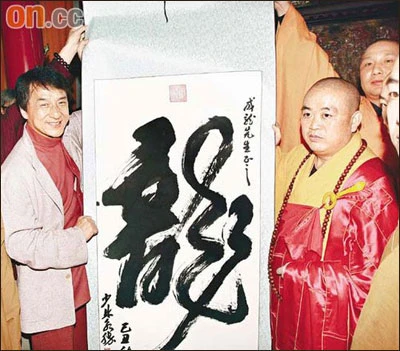 on.cc
龍
成龍先生正之
己丑
少林永信